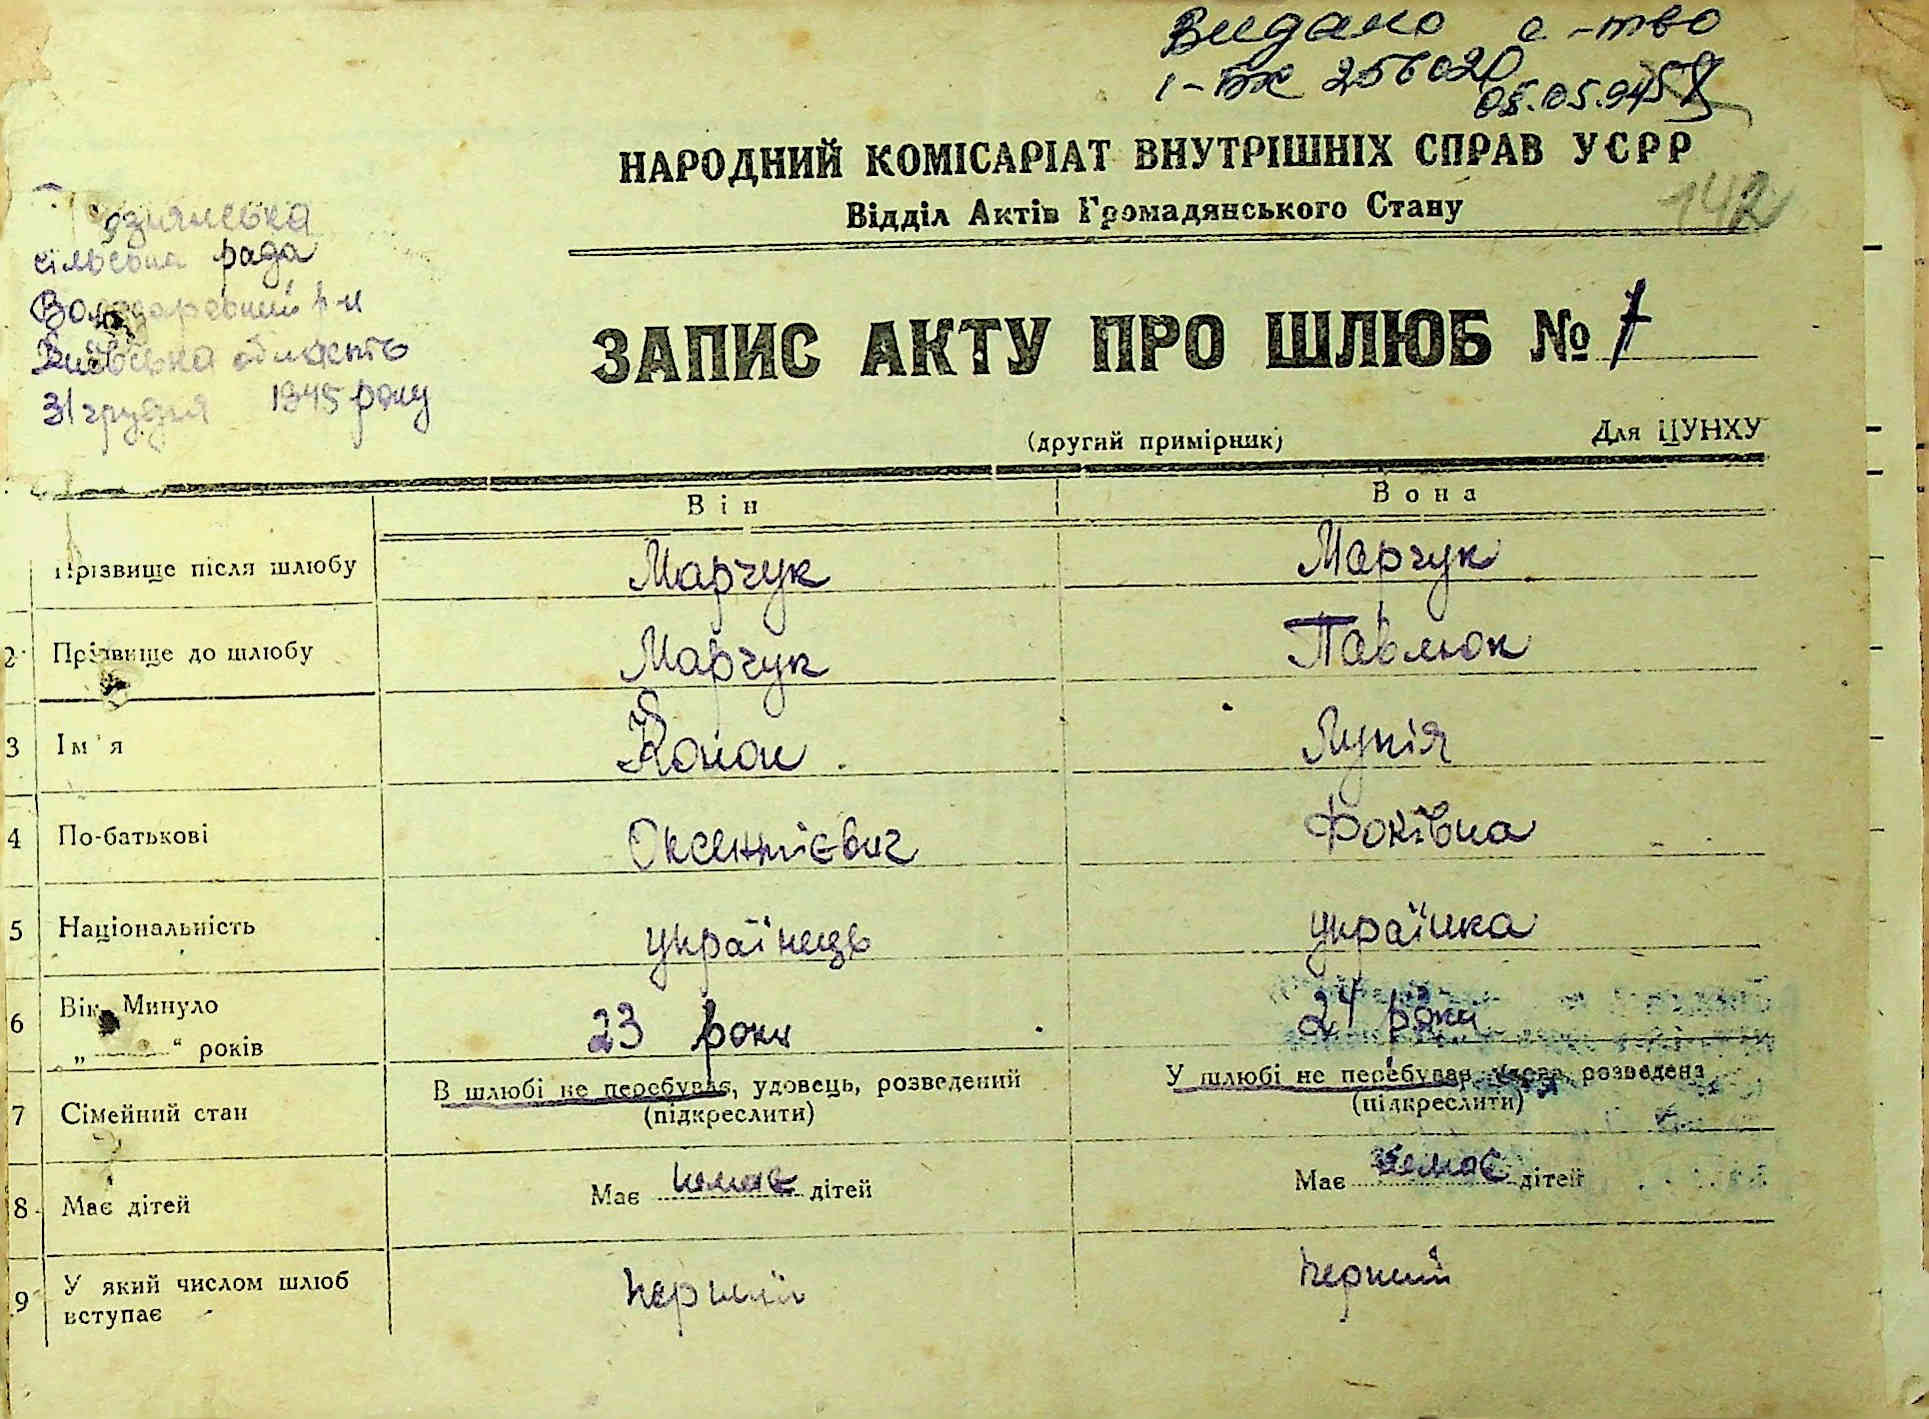 Видано с-тво
І-БК 256020
05.05.94
НАРОДНИЙ КОМІСАРІАТ ВНУТРІШНІХ СПРАВ УСРР
142
Відділ Актів Громадянського Стану
сільська рада
Володарський р-н
Київська область
31 грудня 1945 року
ЗАПИС АКТУ ПРО ШЛЮБ № 7
(другий примірник)
Для ЦУНХУ
Він
Вона
Прізвище після шлюбу
Марчук
Марчук
2
Прізвище до шлюбу
Марчук
Павлюк
3
Ім'я
Конон
Лукія
4
По-батькові
Оксентієвич
Фоківна
5
Національність
українець
українка
6
Вік Минуло
„ “ років
23 роки
24 роки
7
Сімейний стан
В шлюбі не перебував, удовець, розведений
(підкреслити)
У шлюбі не перебував, удова, розведена
(підкреслити)
8
Має дітей
Має немає дітей
Має немає дітей
9
У який числом шлюб
вступає
перший
перший